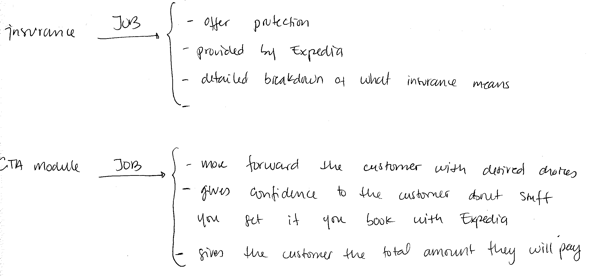 insurance JOB - offer protection
- provided by Expedia
- detailed breakdown of what insurance means
-
CTA module JOB - move forward the customer with desired choices
- gives confidence to the customer about stuff
you get if you book with Expedia
- gives the customer the total amount they will pay